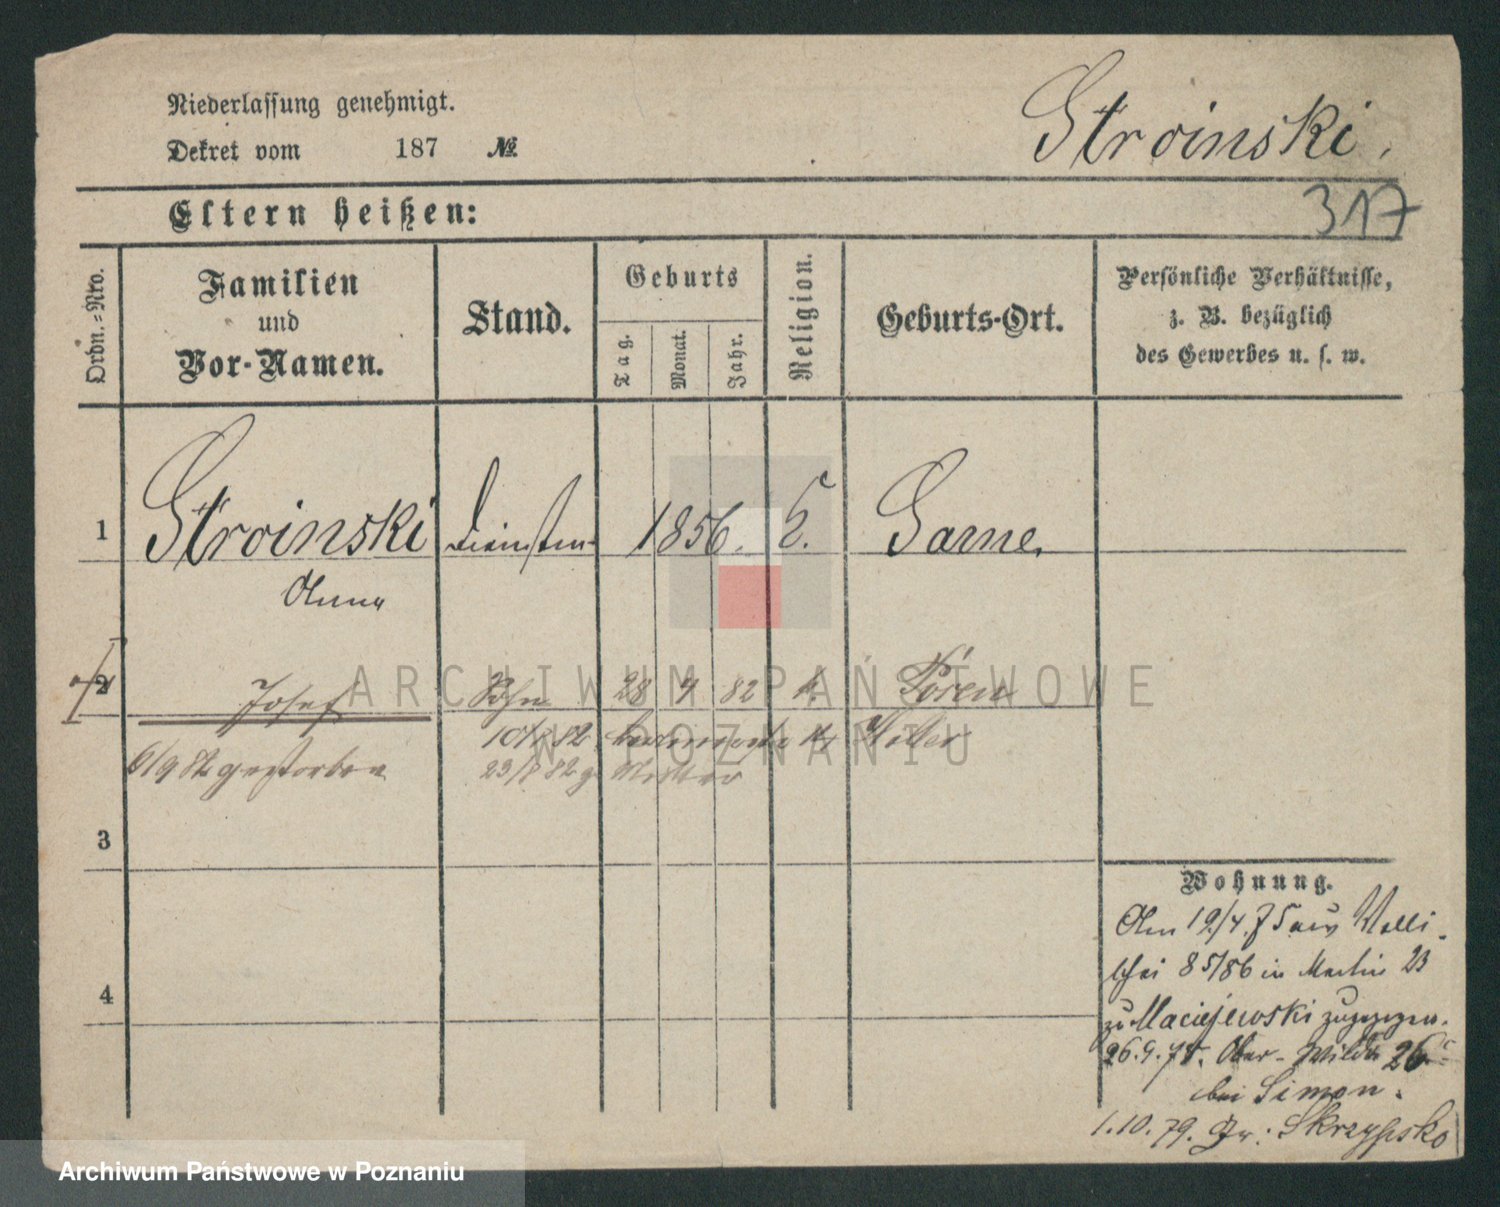 Niederlassung genehmigt.
Dekret vom 187 №
Stroinski.
317
Eltern heißen:
Ordn.-Nro.
Familien
und
Vor-Namen.
Stand.
Geburts
Tag.
Monat.
Jahr.
Religion.
Geburts-Ort.
Persönliche Verhältnisse,
z. B. bezüglich
des Gewerbes u. s. w.
1 Stroinski 1856. Sarne.
Anna
2 Josef Sohn 28 82 k. Posen
10/8 82
6/9 82 gestorben 23/8 82
3
4
Wohnung.
Am 19/4. 75 aus
85/86 in Martin 23
zu Maciejewski zugezogen.
26.9.75. Ober-Wilda 26
bei Simon.
1.10.79. Gr: Skrzypsko
ARCHIWUM PAŃSTWOWE
W POZNANIU
Archiwum Państwowe w Poznaniu